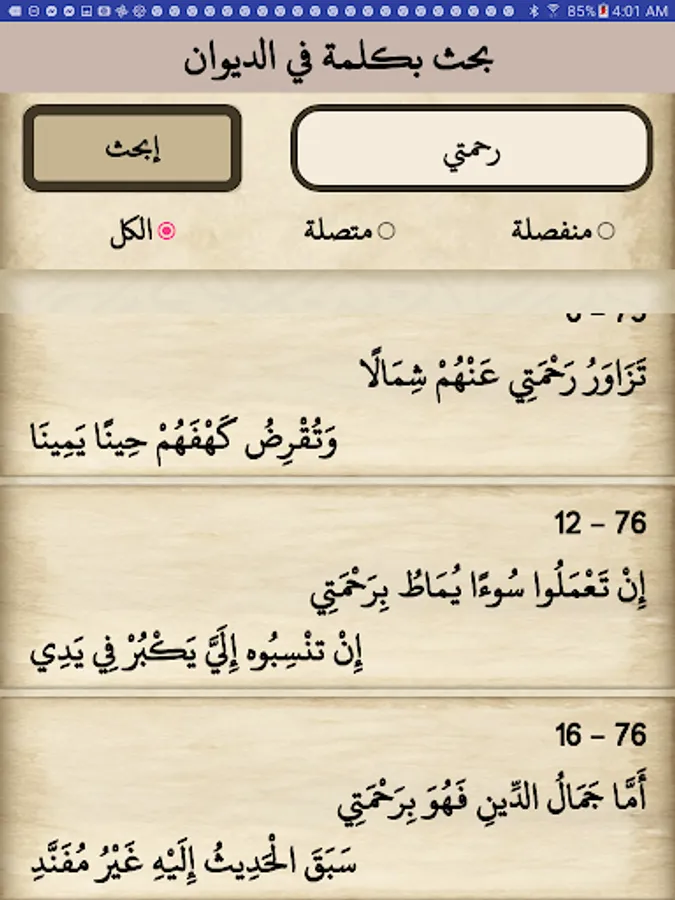 85% 4:01 AM
بحث بكلمة في الديوان
رحمتي
إبحث
منفصلة
متصلة
الكل
تَزَاوَرُ رَحْمَتِي عَنْهُمْ شِمَالًا
وَتُقْرِضُ كَهْفَهُمْ حِينًا يَمِينَا
12 – 76
إِنْ تَعْمَلُوا سُوءًا يُمَاطُ بِرَحْمَتِي
إِنْ تنْسِبُوه إِلَيَّ يَكْبُرْ فِي يَدِي
16 – 76
أَمَّا جَمَالُ الدِّينِ فَهُوَ بِرَحْمَتِي
سَبَقَ الْحَدِيثُ إِلَيْهِ غَيْرُ مُفَنَّدِ